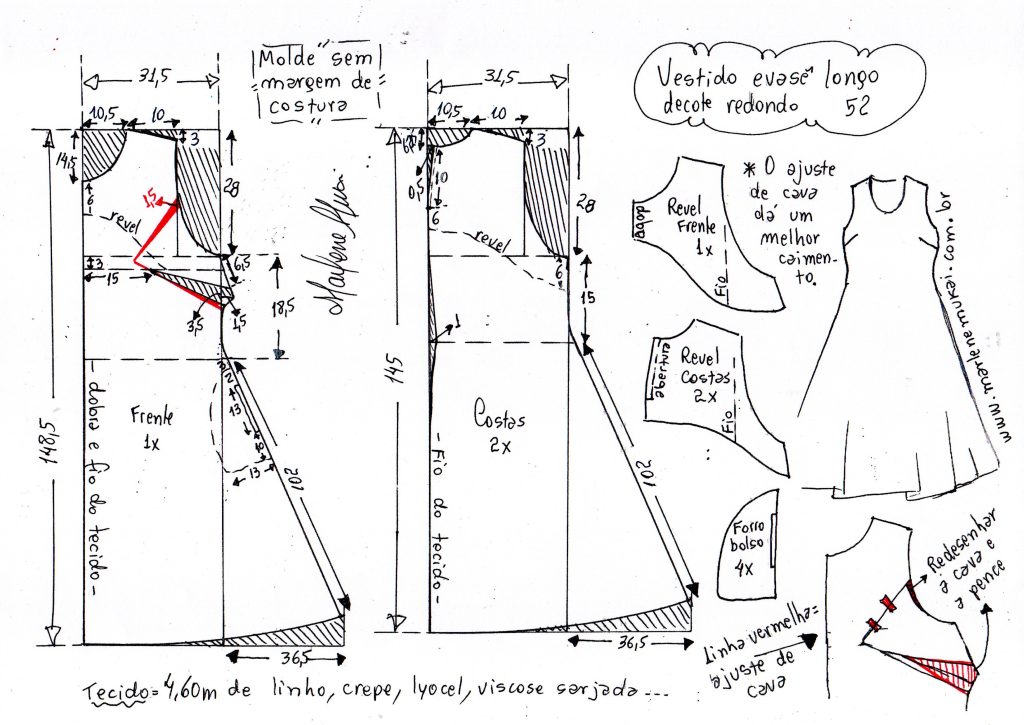 "Molde sem
margem de
costura
Vestido evasê longo
decote redondo 52
31,5
10,5
10
3
14,5
28
6
1,5
revel
3
15
6,5
3,5
1,5
18,5
3
2
4
13
18
13
102
148,5
Frente
1x
- dobra e fio do tecido -
36,5
Marlene Mukai
31,5
10,5
10
3
0,5
10
6
28
revel
6
15
1
145
Costas
2x
- Fio do tecido -
102
36,5
dobra
Revel
Frente
1x
Fio
* O ajuste
de cava
dá um
melhor
caimen-
to.
abertura
Revel
Costas
2x
Fio
www.marlenemukai.com.br
Forro
bolso
4x
Redesenhar
a cava e
a pence
Linha vermelha=
ajuste de
cava
Tecido= 4,60m de linho, crepe, lyocel, viscose sarjada...